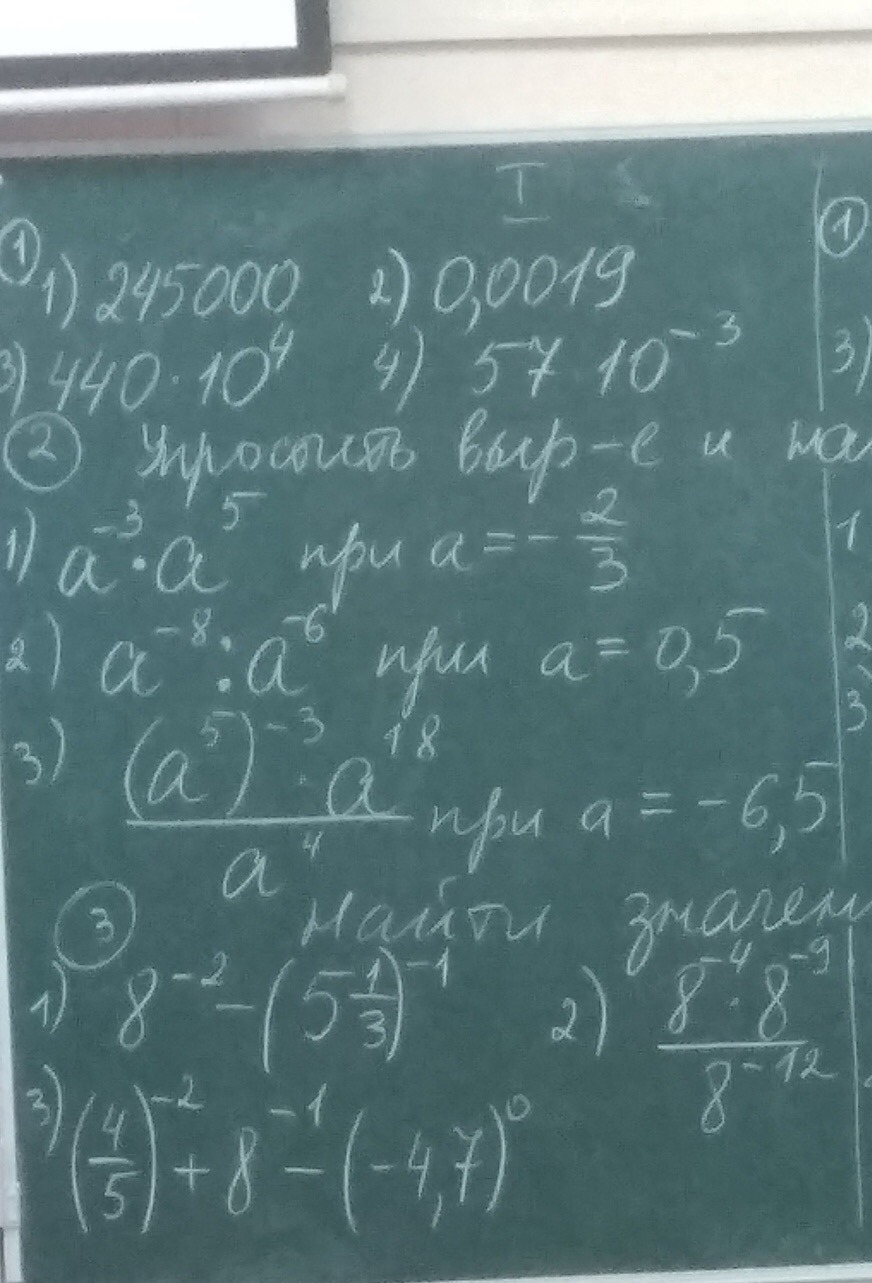 I
① 1) 245000 2) 0,0019
3) 440·10⁴ 4) 57·10⁻³
② Упростить выр-е и
1) a⁻³·a⁵ при a=-2/3
2) a⁻⁸:a⁻⁶ при a=0,5
3) (a⁵)⁻³·a¹⁸/a⁴ при a=-6,5
③ найти
1) 8⁻²-(5 1/3)⁻¹ 2) 8⁻⁴·8⁻⁹/8⁻¹²
3) (4/5)⁻²+8⁻¹-(-4,7)⁰
①
3)
1
2
3